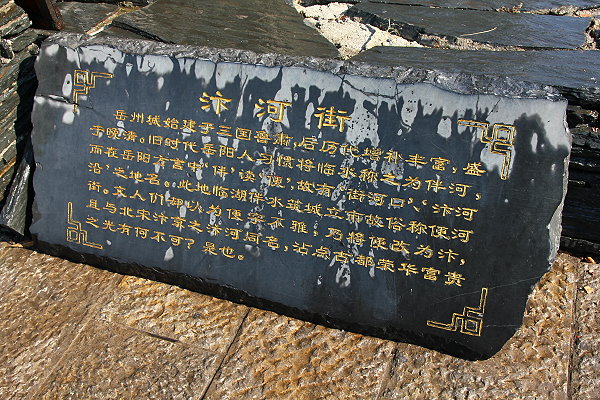 汴河街
岳州城始建于三国鲁肃,后历代增补丰富,盛
于晚清。旧时代岳阳人习惯将临水称之为伴河,
而在岳阳方言中‘伴’读‘便’,故有‘街河口’、‘汴河
沿’之地名。此地临湖伴水筑城立市故俗称便河
街。文人们却以为便字不雅,乃将便改为汴,
且与北宋汴京之汴河同名,沾点古都荣华富贵
之光有何不可?是也。